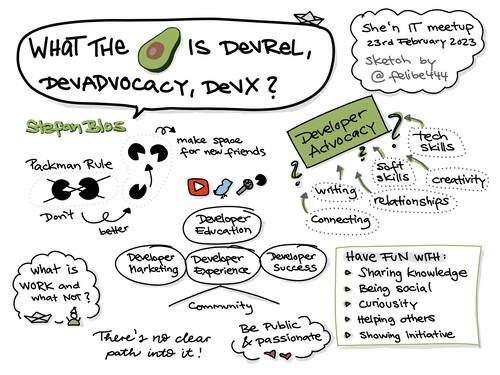 WHAT THE IS DEVREL,
DEVADVOCACY, DEVX?
She'n IT meetup
23rd February 2023
Sketch by
@felibe444
Stefan Blos
Packman Rule
Don't
better
make space
for new friends
Developer
Advocacy
?
?
?
?
tech
skills
soft
skills
creativity
writing
relationships
connecting
Developer
Education
Developer
Marketing
Developer
Experience
Developer
Success
Community
What is
WORK and
what NOT?
There's no clear
path into it!
Be Public
& passionate
HAVE FUN WITH:
Sharing knowledge
Being social
Curiousity
Helping others
Showing initiative